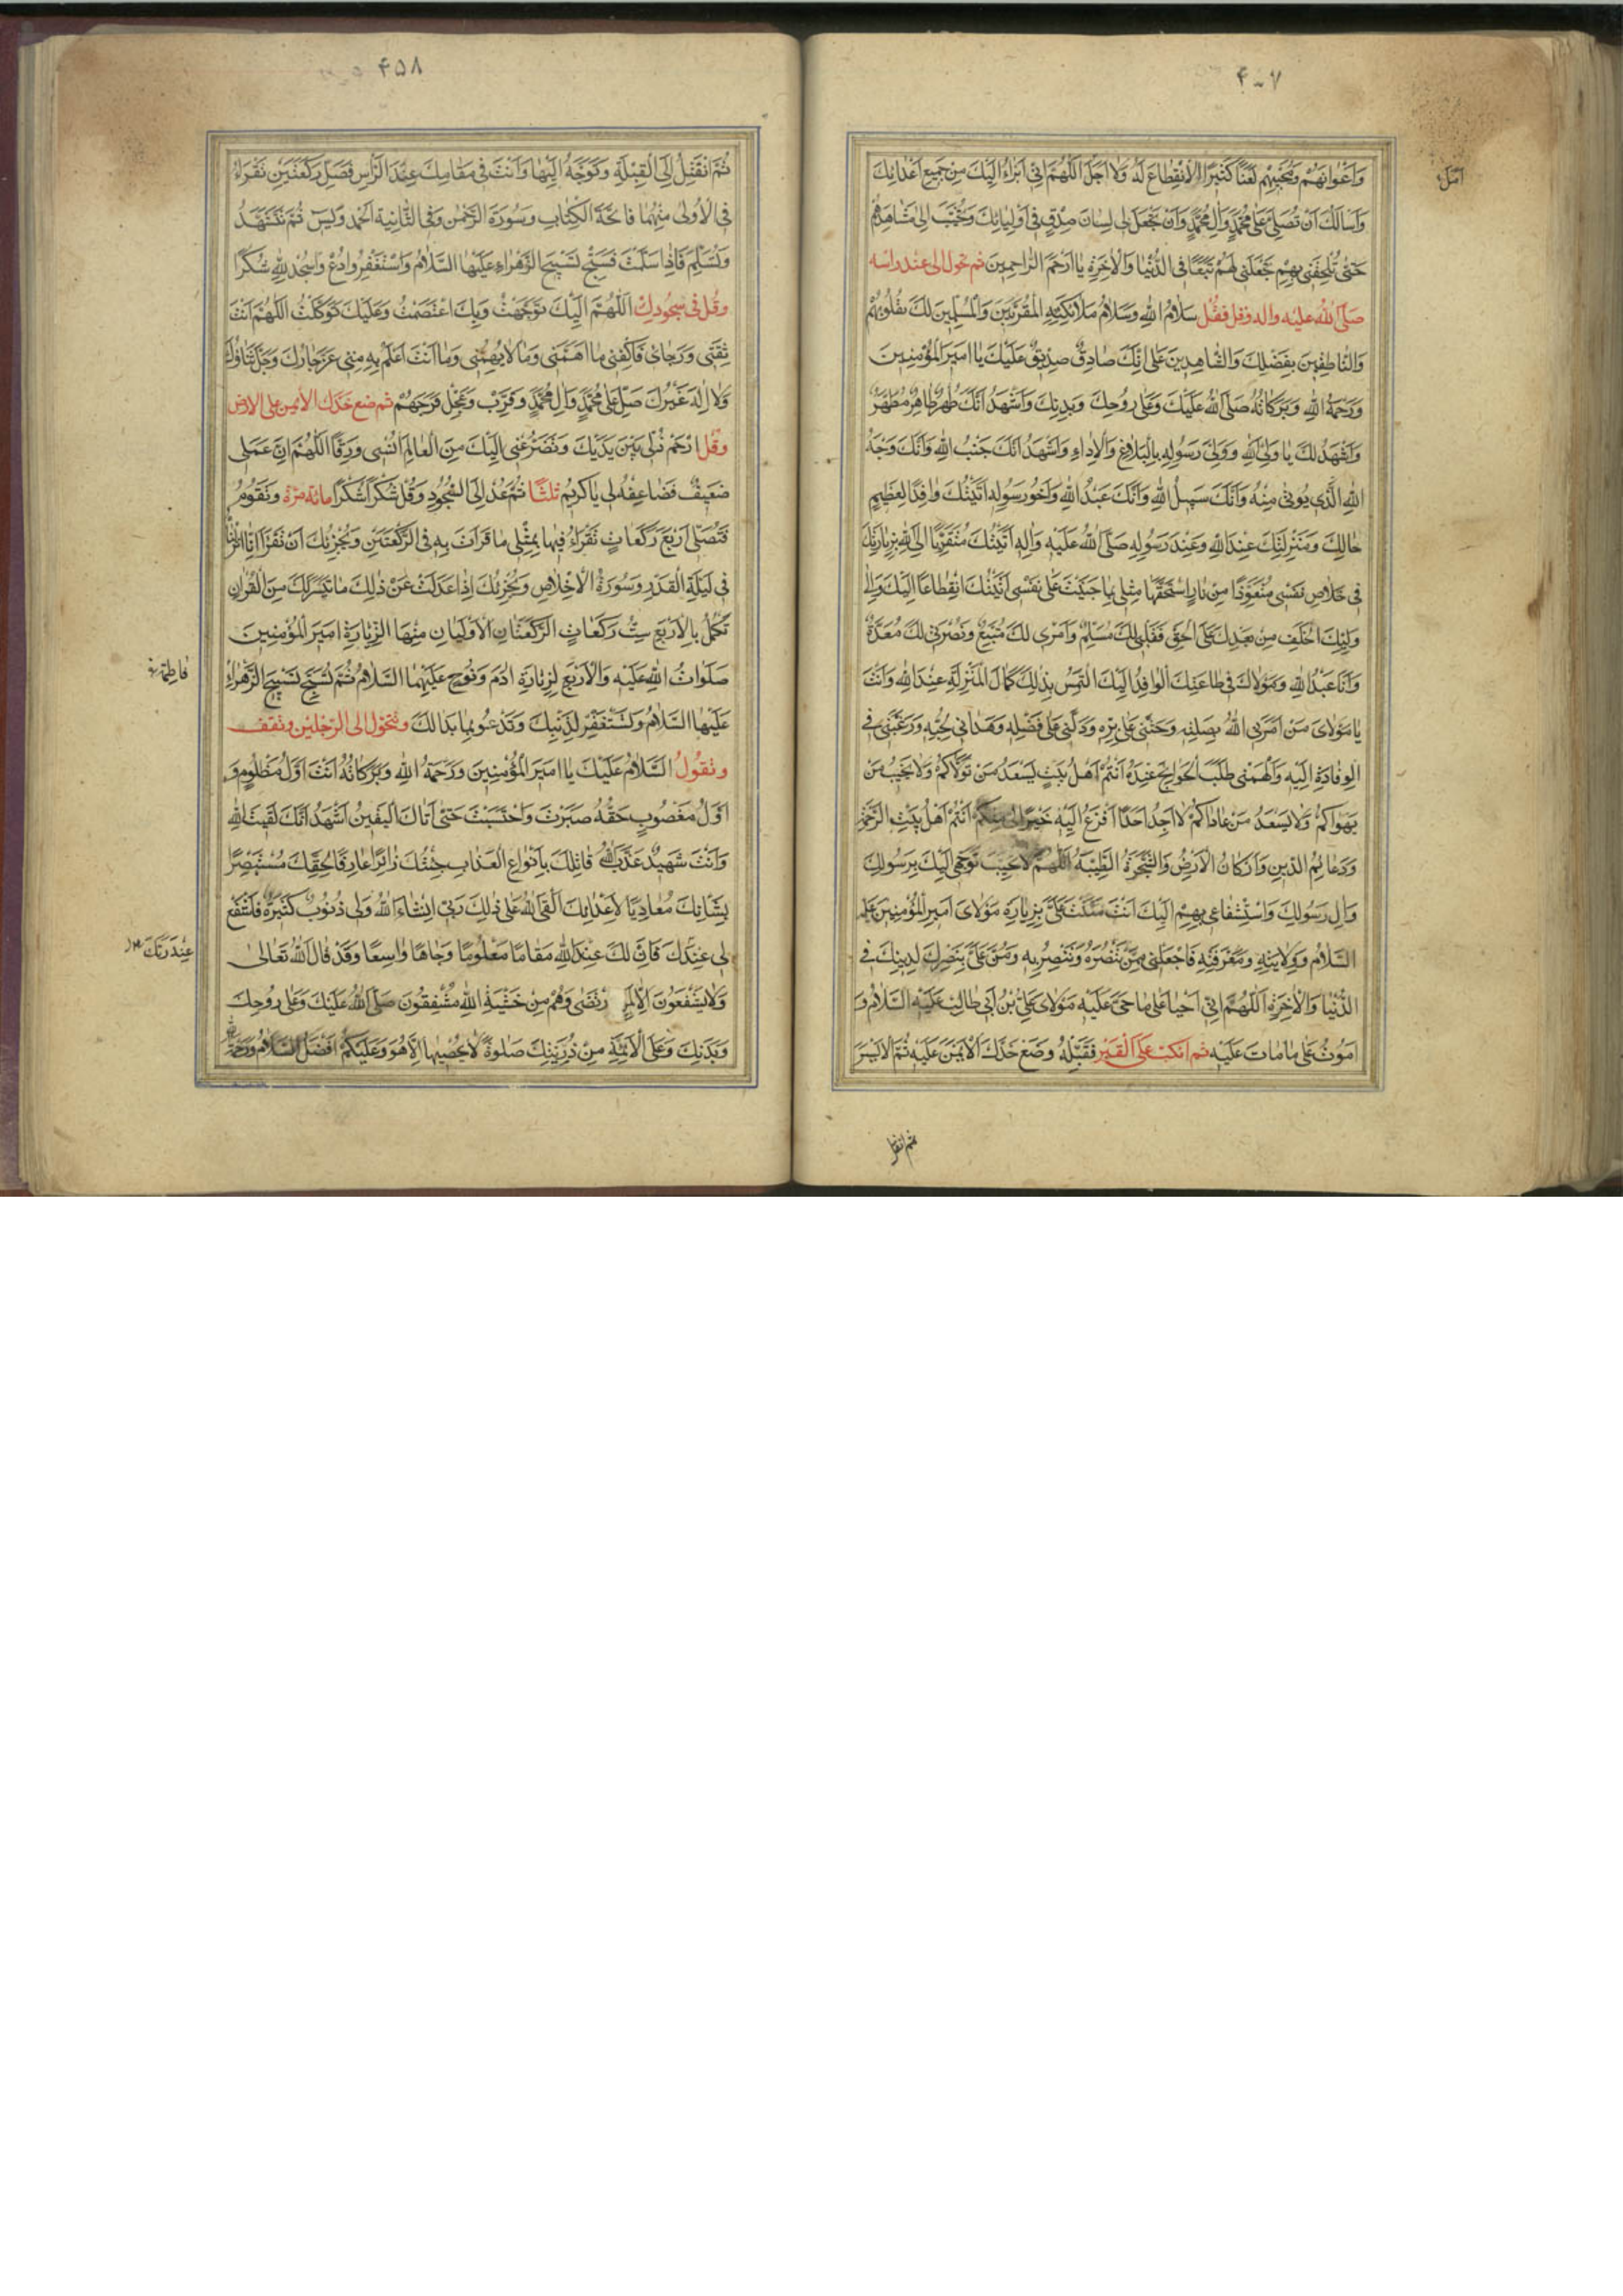 ۴۰۷
وَاَعْوانِهِمْ وَمُحِبّيهِمْ لَعْنًا كَثيرًا لاَ انْقِطاعَ لَهُ وَلا اَجَلَ اَللّهُمَّ اِنّي اَبْرَاُ اِلَيْكَ مِنْ جَميعِ اَعْدائِكَ
وَاَسْاَلُكَ اَنْ تُصَلِّيَ عَلى مُحَمَّدٍ وَالِ مُحَمَّدٍ وَاَنْ تَجْعَلَ لي لِسانَ صِدْقٍ في اَوْلِيائِكَ وَتُحَبِّبَ اِلَيَّ مَشاهِدَهُمْ
حَتّى تُلْحِقَني بِهِمْ وَتَجْعَلَني لَهُمْ تَبَعًا فِي الدُّنْيا وَالْاخِرَةِ يا اَرْحَمَ الرّاحِمينَ ثم تحول الى عند راسه
صَلَّى اللهُ عليه واله وقف فقُل سَلامُ اللهِ وَسَلامُ مَلائِكَتِهِ الْمُقَرَّبينَ وَالْمُسَلِّمينَ لَكَ بِقُلُوبِهِمْ
وَالنّاطِقينَ بِفَضْلِكَ وَالشّاهِدينَ عَلى اَنَّكَ صادِقٌ صِدّيقٌ عَلَيْكَ يا اَميرَ الْمُؤْمِنينَ
وَرَحْمَةُ اللهِ وَبَرَكاتُهُ صَلَّى اللهُ عَلَيْكَ وَعَلى رُوحِكَ وَبَدَنِكَ وَاَشْهَدُ اَنَّكَ طُهْرٌ طاهِرٌ مُطَهَّرٌ
وَاَشْهَدُ لَكَ يا وَلِيَّ اللهِ وَوَلِيَّ رَسُولِهِ بِالْبَلاغِ وَالْاَداءِ وَاَشْهَدُ اَنَّكَ جَنْبُ اللهِ وَاَنَّكَ وَجْهُ
اللهِ الَّذي يُؤْتى مِنْهُ وَاَنَّكَ سَبيلُ اللهِ وَاَنَّكَ عَبْدُ اللهِ وَاَخُو رَسُولِهِ اَتَيْتُكَ وافِدًا لِعَظيمِ
حالِكَ وَمَنْزِلَتِكَ عِنْدَ اللهِ وَعِنْدَ رَسُولِهِ صَلَّى اللهُ عَلَيْهِ وَالِهِ اَتَيْتُكَ مُتَقَرِّبًا اِلَى اللهِ بِزِيارَتِكَ
في خَلاصِ نَفْسي مُتَعَوِّذًا مِنْ نارٍ اسْتَحَقَّها مِثْلي بِما جَنَيْتُ عَلى نَفْسي اَتَيْتُكَ انْقِطاعًا اِلَيْكَ وَاِلى
وَلِيِّكَ الْخَلَفِ مِنْ بَعْدِكَ عَلَى الْحَقِّ فَقَلْبي لَكَ مُسَلِّمٌ وَاَمْري لَكَ مُتَّبِعٌ وَنُصْرَتي لَكَ مُعَدَّةٌ
وَاَنَا عَبْدُ اللهِ وَمَوْلاكَ في طاعَتِكَ الْوافِدُ اِلَيْكَ اَلْتَمِسُ بِذلِكَ كَمالَ الْمَنْزِلَةِ عِنْدَ اللهِ وَاَنْتَ
يا مَوْلايَ مَنْ اَمَرَنِي اللهُ بِصِلَتِهِ وَحَثَّني عَلى بِرِّهِ وَدَلَّني عَلى فَضْلِهِ وَهَداني لِحُبِّهِ وَرَغَّبَني في
الْوِفادَةِ اِلَيْهِ وَاَلْهَمَني طَلَبَ الْحَوائِجِ عِنْدَهُ اَنْتُمْ اَهْلُ بَيْتٍ يَسْعَدُ مَنْ تَوَلّاكُمْ وَلا يَخيبُ مَنْ
يَهْواكُمْ وَلا يَسْعَدُ مَنْ عاداكُمْ لا اَجِدُ اَحَدًا اَفْزَعُ اِلَيْهِ خَيْرًا لي مِنْكُمْ اَنْتُمْ اَهْلُ بَيْتِ الرَّحْمَةِ
وَدَعائِمُ الدّينِ وَاَرْكانُ الْاَرْضِ وَالشَّجَرَةُ الطَّيِّبَةُ اَللّهُمَّ لا تُخَيِّبْ تَوَجُّهي اِلَيْكَ بِرَسُولِكَ
وَالِ رَسُولِكَ وَاسْتِشْفاعي بِهِمْ اِلَيْكَ اَنْتَ مَنَنْتَ عَلَيَّ بِزِيارَةِ مَوْلايَ اَميرِ الْمُؤْمِنينَ عليه
السَّلامُ وَوِلايَتِهِ وَمَعْرِفَتِهِ فَاجْعَلْني مِمَّنْ تَنْصُرُهُ وَتَنْتَصِرُ بِهِ وَمُنَّ عَلَيَّ بِنَصْرِكَ لِدينِكَ في
الدُّنْيا وَالْاخِرَةِ اَللّهُمَّ اِنّي اَحْيا عَلى ما حَيِيَ عَلَيْهِ مَوْلايَ عَلِيُّ بْنُ اَبي طالِبٍ عَلَيْهِ السَّلامُ وَ
اَمُوتُ عَلى ما ماتَ عَلَيْهِ ثم انكبّ عَلَى الْقَبْرِ فَقَبِّلْهُ وَضَعْ خَدَّكَ الْاَيْمَنَ عَلَيْهِ ثُمَّ الْاَيْسَرَ
ثم انفتل
۴۵۸
ثُمَّ انْفَتِلْ اِلَى الْقِبْلَةِ وَتَوَجَّهْ اِلَيْها وَاَنْتَ في مَقامِكَ عِنْدَ الرَّاْسِ فَصَلِّ رَكْعَتَيْنِ تَقْرَاُ
فِي الْاُولى مِنْهُما فاتِحَةَ الْكِتابِ وَسُورَةَ الرَّحْمنِ وَفِي الثّانِيَةِ الْحَمْدَ وَيس ثُمَّ تَتَشَهَّدُ
وَتُسَلِّمُ فَاِذا سَلَّمْتَ فَسَبِّحْ تَسْبيحَ الزَّهْراءِ عَلَيْهَا السَّلامُ وَاسْتَغْفِرْ وَادْعُ وَاسْجُدْ لِلّهِ شُكْرًا
وقُل في سجُودِك اَللّهُمَّ اِلَيْكَ تَوَجَّهْتُ وَبِكَ اعْتَصَمْتُ وَعَلَيْكَ تَوَكَّلْتُ اَللّهُمَّ اَنْتَ
ثِقَتي وَرَجائي فَاكْفِني ما اَهَمَّني وَما لا يُهِمُّني وَما اَنْتَ اَعْلَمُ بِهِ مِنّي عَزَّ جارُكَ وَجَلَّ ثَناؤُكَ
وَلا اِلهَ غَيْرُكَ صَلِّ عَلى مُحَمَّدٍ وَالِ مُحَمَّدٍ وَقَرِّبْ وَعَجِّلْ فَرَجَهُمْ ثم ضع خدّك الأيمن على الارض
وقُل ارْحَمْ ذُلّي بَيْنَ يَدَيْكَ وَتَضَرُّعي اِلَيْكَ مِنَ الْعالَمِ اُنْسي وَرِقًّا اَللّهُمَّ اِنَّ عَمَلي
ضَعيفٌ فَضاعِفْهُ لي يا كَريمُ ثلثًا ثُمَّ عُدْ اِلَى السُّجُودِ وَقُلْ شُكْرًا شُكْرًا مائة مرّة وَتَقُومُ
فَتُصَلّي اَرْبَعَ رَكَعاتٍ تَقْرَاُ فيها بِمِثْلِ ما قَرَاْتَ بِهِ فِي الرَّكْعَتَيْنِ وَيُجْزِئُكَ اَنْ تَقْرَاَ اِنّا اَنْزَلْناهُ
في لَيْلَةِ الْقَدْرِ وَسُورَةَ الْاِخْلاصِ وَيُجْزِئُكَ اِذا عَدَلْتَ عَنْ ذلِكَ ما تَيَسَّرَ لَكَ مِنَ الْقُرْانِ
تُكَمِّلُ بِالْاَرْبَعِ سِتَّ رَكَعاتٍ الرَّكْعَتانِ الْاُولَيانِ مِنْها لِزِيارَةِ اَميرِ الْمُؤْمِنينَ
صَلَواتُ اللهِ عَلَيْهِ وَالْاَرْبَعُ لِزِيارَةِ ادَمَ وَنُوحٍ عَلَيْهِمَا السَّلامُ ثُمَّ تُسَبِّحُ تَسْبيحَ الزَّهْراءِ
عَلَيْهَا السَّلامُ وَتَسْتَغْفِرُ لِذَنْبِكَ وَتَدْعُو بِما بَدا لَكَ وتتحوّل الى الرّجلين وتقف
وتقُولُ اَلسَّلامُ عَلَيْكَ يا اَميرَ الْمُؤْمِنينَ وَرَحْمَةُ اللهِ وَبَرَكاتُهُ اَنْتَ اَوَّلُ مَظْلُومٍ وَ
اَوَّلُ مَغْصُوبٍ حَقُّهُ صَبَرْتَ وَاحْتَسَبْتَ حَتّى اَتاكَ الْيَقينُ اَشْهَدُ اَنَّكَ لَقيتَ اللهَ
وَاَنْتَ شَهيدٌ عَذَّبَ اللهُ قاتِلَكَ بِاَنْواعِ الْعَذابِ جِئْتُكَ زائِرًا عارِفًا بِحَقِّكَ مُسْتَبْصِرًا
بِشَاْنِكَ مُعادِيًا لِاَعْدائِكَ اَلْقَى اللهَ عَلى ذلِكَ رَبّي اِنْ شاءَ اللهُ وَلي ذُنُوبٌ كَثيرَةٌ فَاشْفَعْ
لي عِنْدَكَ فَاِنَّ لَكَ عِنْدَ اللهِ مَقامًا مَعْلُومًا وَجاهًا واسِعًا وَقَدْ قالَ اللهُ تَعالى
وَلا يَشْفَعُونَ اِلّا لِمَنِ ارْتَضى وَهُمْ مِنْ خَشْيَةِ اللهِ مُشْفِقُونَ صَلَّى اللهُ عَلَيْكَ وَعَلى رُوحِكَ
وَبَدَنِكَ وَعَلَى الْاَئِمَّةِ مِنْ ذُرِّيَّتِكَ صَلوةً لا يُحْصيها اِلّا هُوَ وَعَلَيْكُمْ اَفْضَلُ السَّلامُ وَرَحْمَةُ
فاطِمَة
عِنْدَ رَبِّكَ